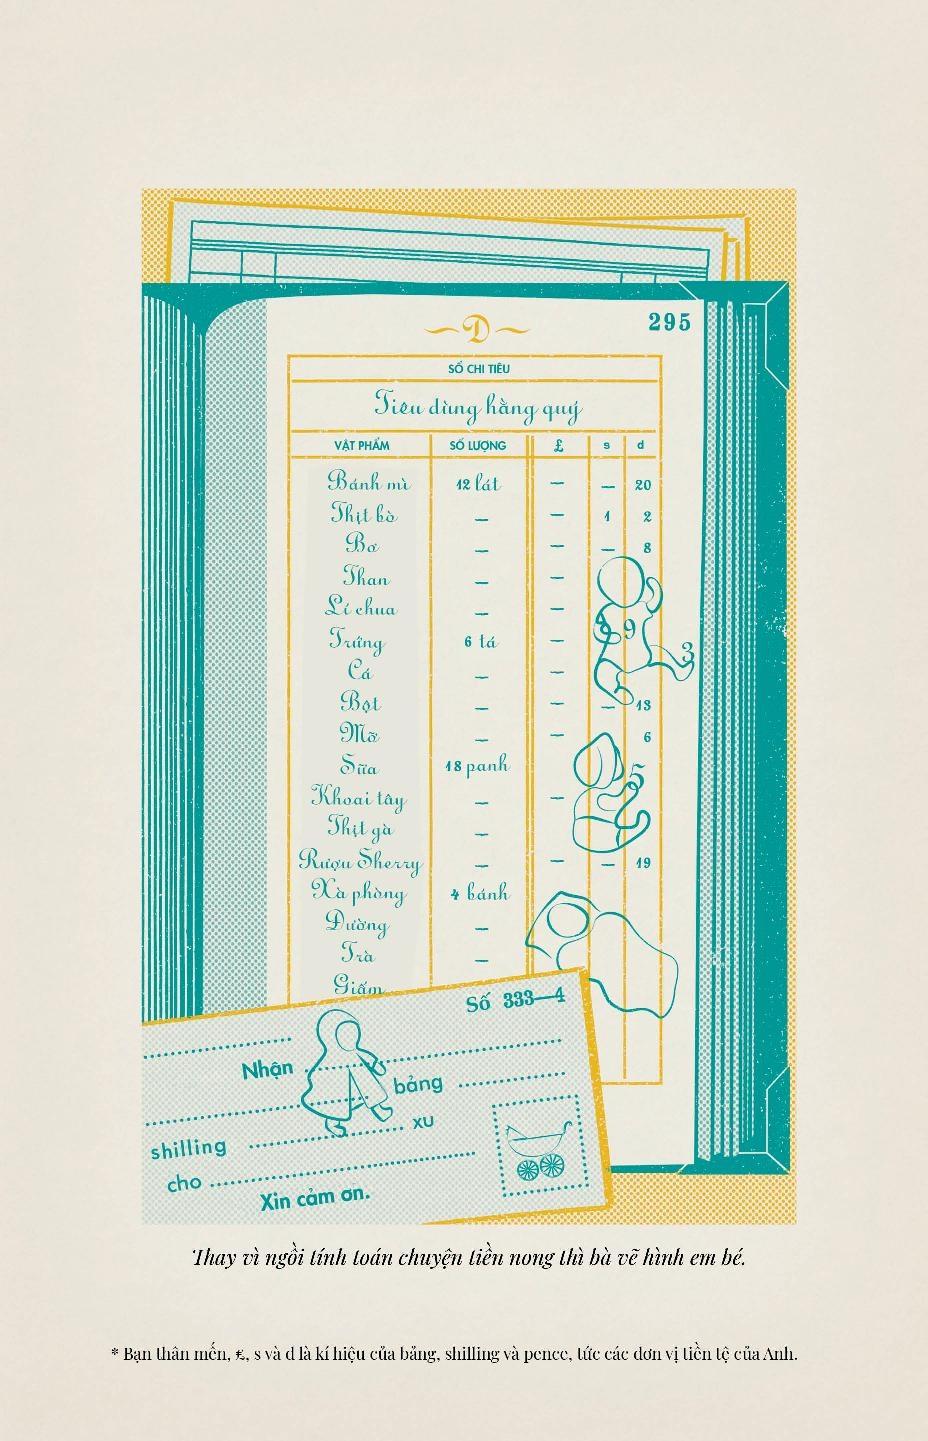 D
295
SỔ CHI TIÊU
Tiêu dùng hằng quý
VẬT PHẨM SỐ LƯỢNG £ s d
Bánh mì 12 lát — — 20
Thịt bò — — 1 2
Bơ — — — 8
Than — —
Lí chua — —
Trứng 6 tá — 9
Cá — — 3
Bột — — — 13
Mỡ — — 6
Sữa 18 panh 5
Khoai tây — —
Thịt gà —
Rượu Sherry — — — 19
Xà phòng 4 bánh
Đường —
Trà —
Giấm
Số 333—4
Nhận
bảng
shilling xu
cho
Xin cảm ơn.
Thay vì ngồi tính toán chuyện tiền nong thì bà vẽ hình em bé.
* Bạn thân mến, £, s và d là kí hiệu của bảng, shilling và pence, tức các đơn vị tiền tệ của Anh.